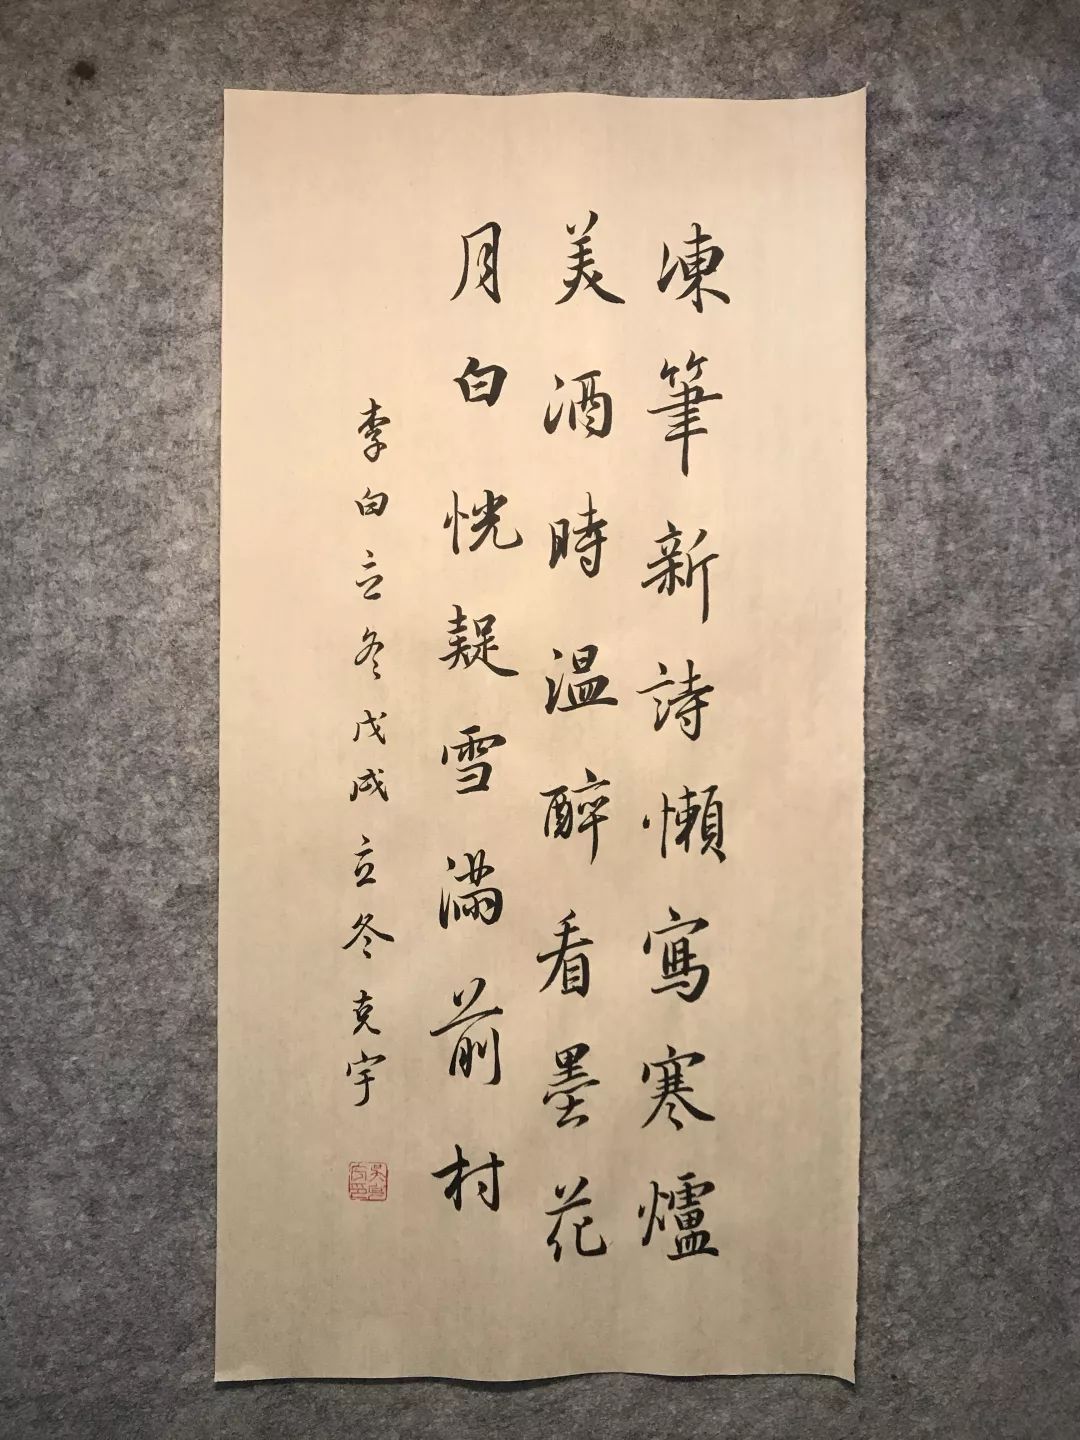 凍筆新詩懶寫寒爐
美酒時温醉看墨花
月白恍疑雪滿前村
李白立冬戊戌立冬克宇